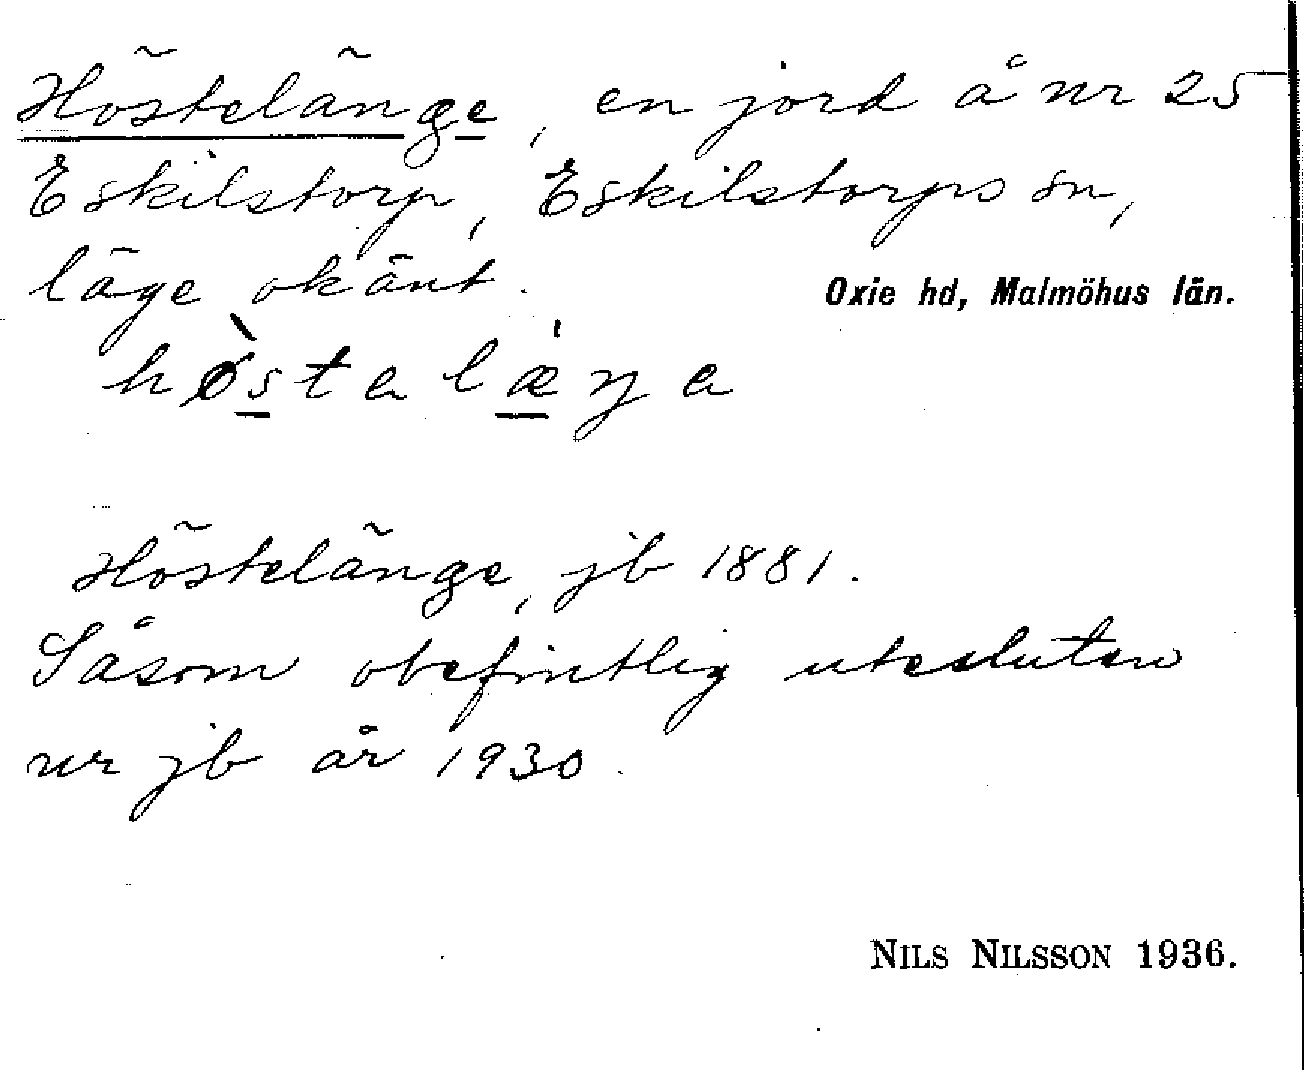 Höstelänge, en jord å nr 25
Eskilstorp, Eskilstorps sn,
läge okänt.
Oxie hd, Malmöhus län.
Höstelänge, jb 1881.
Såsom obefintlig utesluten
ur jb år 1930.
NILS NILSSON 1936.